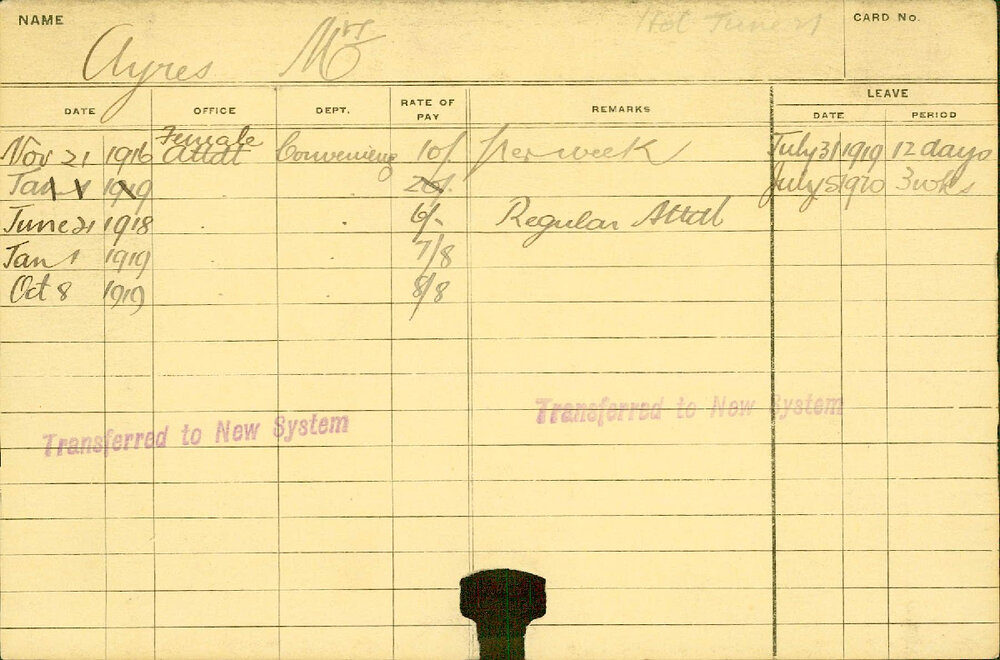 NAME Ayres Mrs CARD No.
LEAVE
DATE OFFICE DEPT. RATE OF PAY REMARKS DATE PERIOD
Nov 21 1916 Female Attdt Convenience 10/. per week July 31 1919 12 days
Jan 1 1919 20/. July 5 1920 3 wks
June 21 1918 . . 6/- Regular Attdt
Jan 1 1919 7/8
Oct 8 1919 . 8/8
Transferred to New System
Transferred to New System